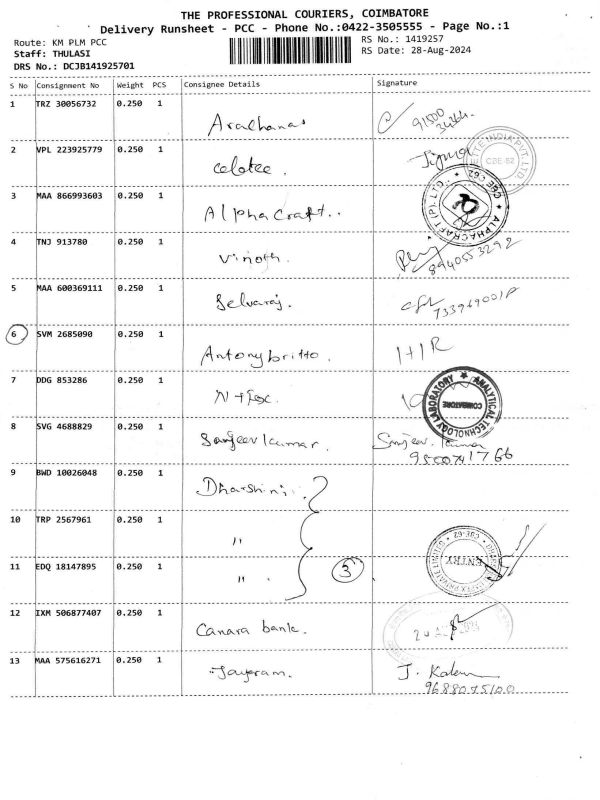 THE PROFESSIONAL COURIERS, COIMBATORE
Delivery Runsheet - PCC - Phone No.:0422-3505555 - Page No.:1
Route: KM PLM PCC
RS No.: 1419257
Staff: THULASI
RS Date: 28-Aug-2024
DRS No.: DCJB141925701
S No Consignment No Weight PCS Consignee Details Signature
1 TRZ 30056732 0.250 1 Aradhanas 91500
2 VPL 223925779 0.250 1 celotee.
CBE-62
3 MAA 866993603 0.250 1 Alpha Craft..
ALPHACRAFT (P) LTD. CBE-62
4 TNJ 913780 0.250 1 Vinoth. 8940553292
5 MAA 600369111 0.250 1 Selvaraj.
6 SVM 2685090 0.250 1 Antonybritto. 1+1R
7 DDG 853286 0.250 1
ANALYTICAL TECHNOLOGY LABORATORY COIMBATORE
8 SVG 4688829 0.250 1 Sanjeev kumar. Sanjeev. kumar
9500741766
9 BWD 10026048 0.250 1 Dharshini
10 TRP 2567961 0.250 1 "
11 EDQ 18147895 0.250 1 " 3
ENTRY
12 IXM 506877407 0.250 1 Canara bank.
13 MAA 575616271 0.250 1 Jayaram. J.
9688075100